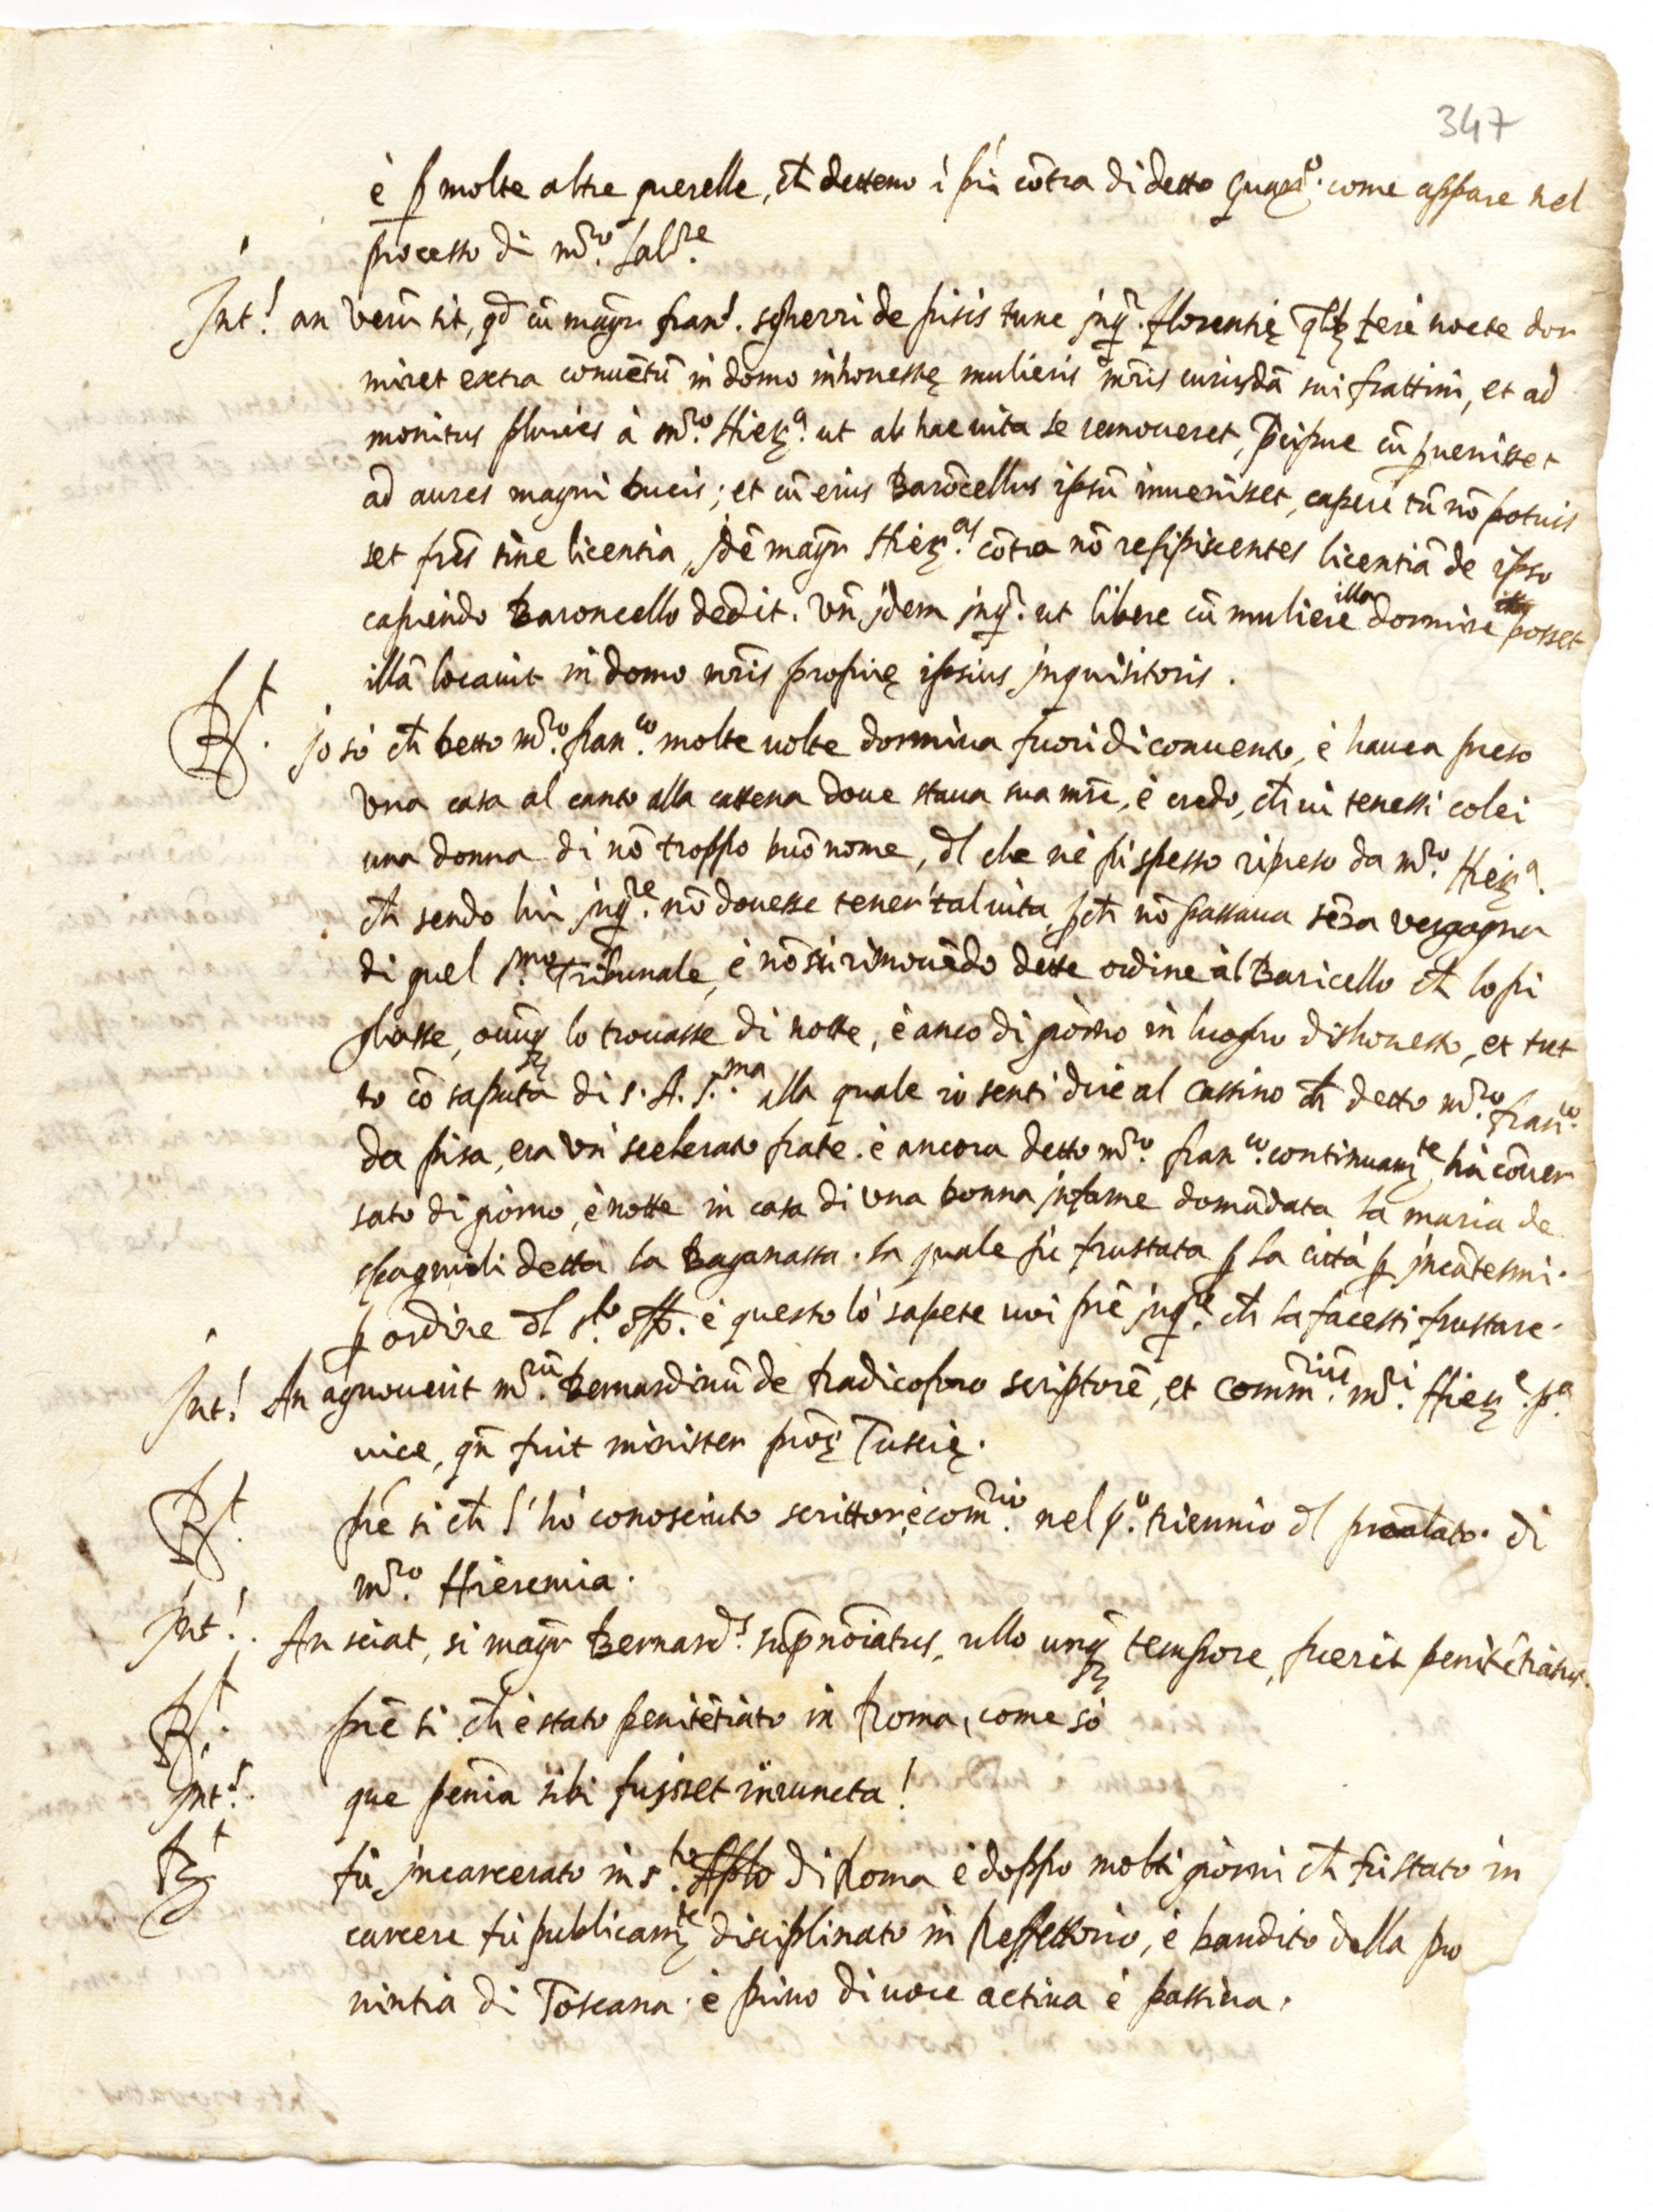 347
è p molte altre querelle, ch detteno i più cōtra di detto Guarº. come appare nel
processo di m.ro Sal.re
Int.s an verū sit, qd cū magr̄ fran.s sgherri de pisis tunc jnq.r florentię qlib; fere nocte dor
miret extra conuētū in domo inhonestę mulieris mr̄is cuiusdā sui frattini, et ad
monitus pluries à m.ro Hier.a ut ab hac uita se remoueret, p̄cipue cū puenisset
ad aures magni Ducis; et cū eius Barōcellus ipsū inuenisset, capere tn̄ nō potuis
set fres sine licentia, jdē magr̄ Hier.as cōtra nō resipiscentes licentiā de ipso
capiendo Baroncello dedit. Vn̄ jdem jnq.r ut libere cū muliere illa dormire posset
illā locauit in domo mr̄is proprię ipsius jnquisitoris.
R.t jo sò ch detto m.ro fran.co molte uolte dormiua fuori di conuento, è hauea preso
Vna casa al canto alla cattena doue staua sua mr̄e, è credo, ch ui tenessi colei
una donna di nō troppo buō nome, dl che nè fù spesso ripreso da m.ro Hier.a
ch sendo lui jnq.re nō douesse tener tal uita, pch nō passaua sēza vergogna
di quel s.mo Tribunale, è nō si rimouēdo dette ordine al Baricello ch lo pi
gliasse, ouūq; lo trouasse di notte, è anco di giorno in luogho dishonesto, et tut
to cō saputa di S. A. S.ma alla quale io senti dire al Cassino ch detto m.ro fran.co
da pisa, era vn scelerato frate. è ancora detto m.ro fran.co continuam.te hà cōuer
sato di giorno, è notte in casa di vna donna jnfame domādata la maria de
spagnioli detta la Baganassa. la quale fù frustata p la città p jncātesmi.
p ordine dl s.to off.o è questo lò sapete uoi prē jnq.re ch la facesti frustare.
Int.s An agnouerit m.rū Bernardinū de Radicofano scriptorē, et comm.riū m.ri Hier.e p.a
uice, qn̄ fuit minister prov̄ę Tuscię.
R.t prē si ch l'hò conosciuto scrittore, è com.rio nel pº. triennio dl proalato. di
m.ro Hieremia.
Int.s An sciat, si magr̄ Bernard.s sup̄nōiatus, ullo unq; tempore, fuerit penitētiatus.
R.t prē si ch è stato penitētiato in Roma, come sò
Int.s que penīa sibi fuisset iniuncta!
R.t fù jncarcerato in s.to Apl̄o di Roma è doppo molti giorni ch fù stato in
carcere fù publicam.te disciplinato in Reffettorio, è bandito della pro
uintia di Toscana. è priuo di uoce actiua è passiua.